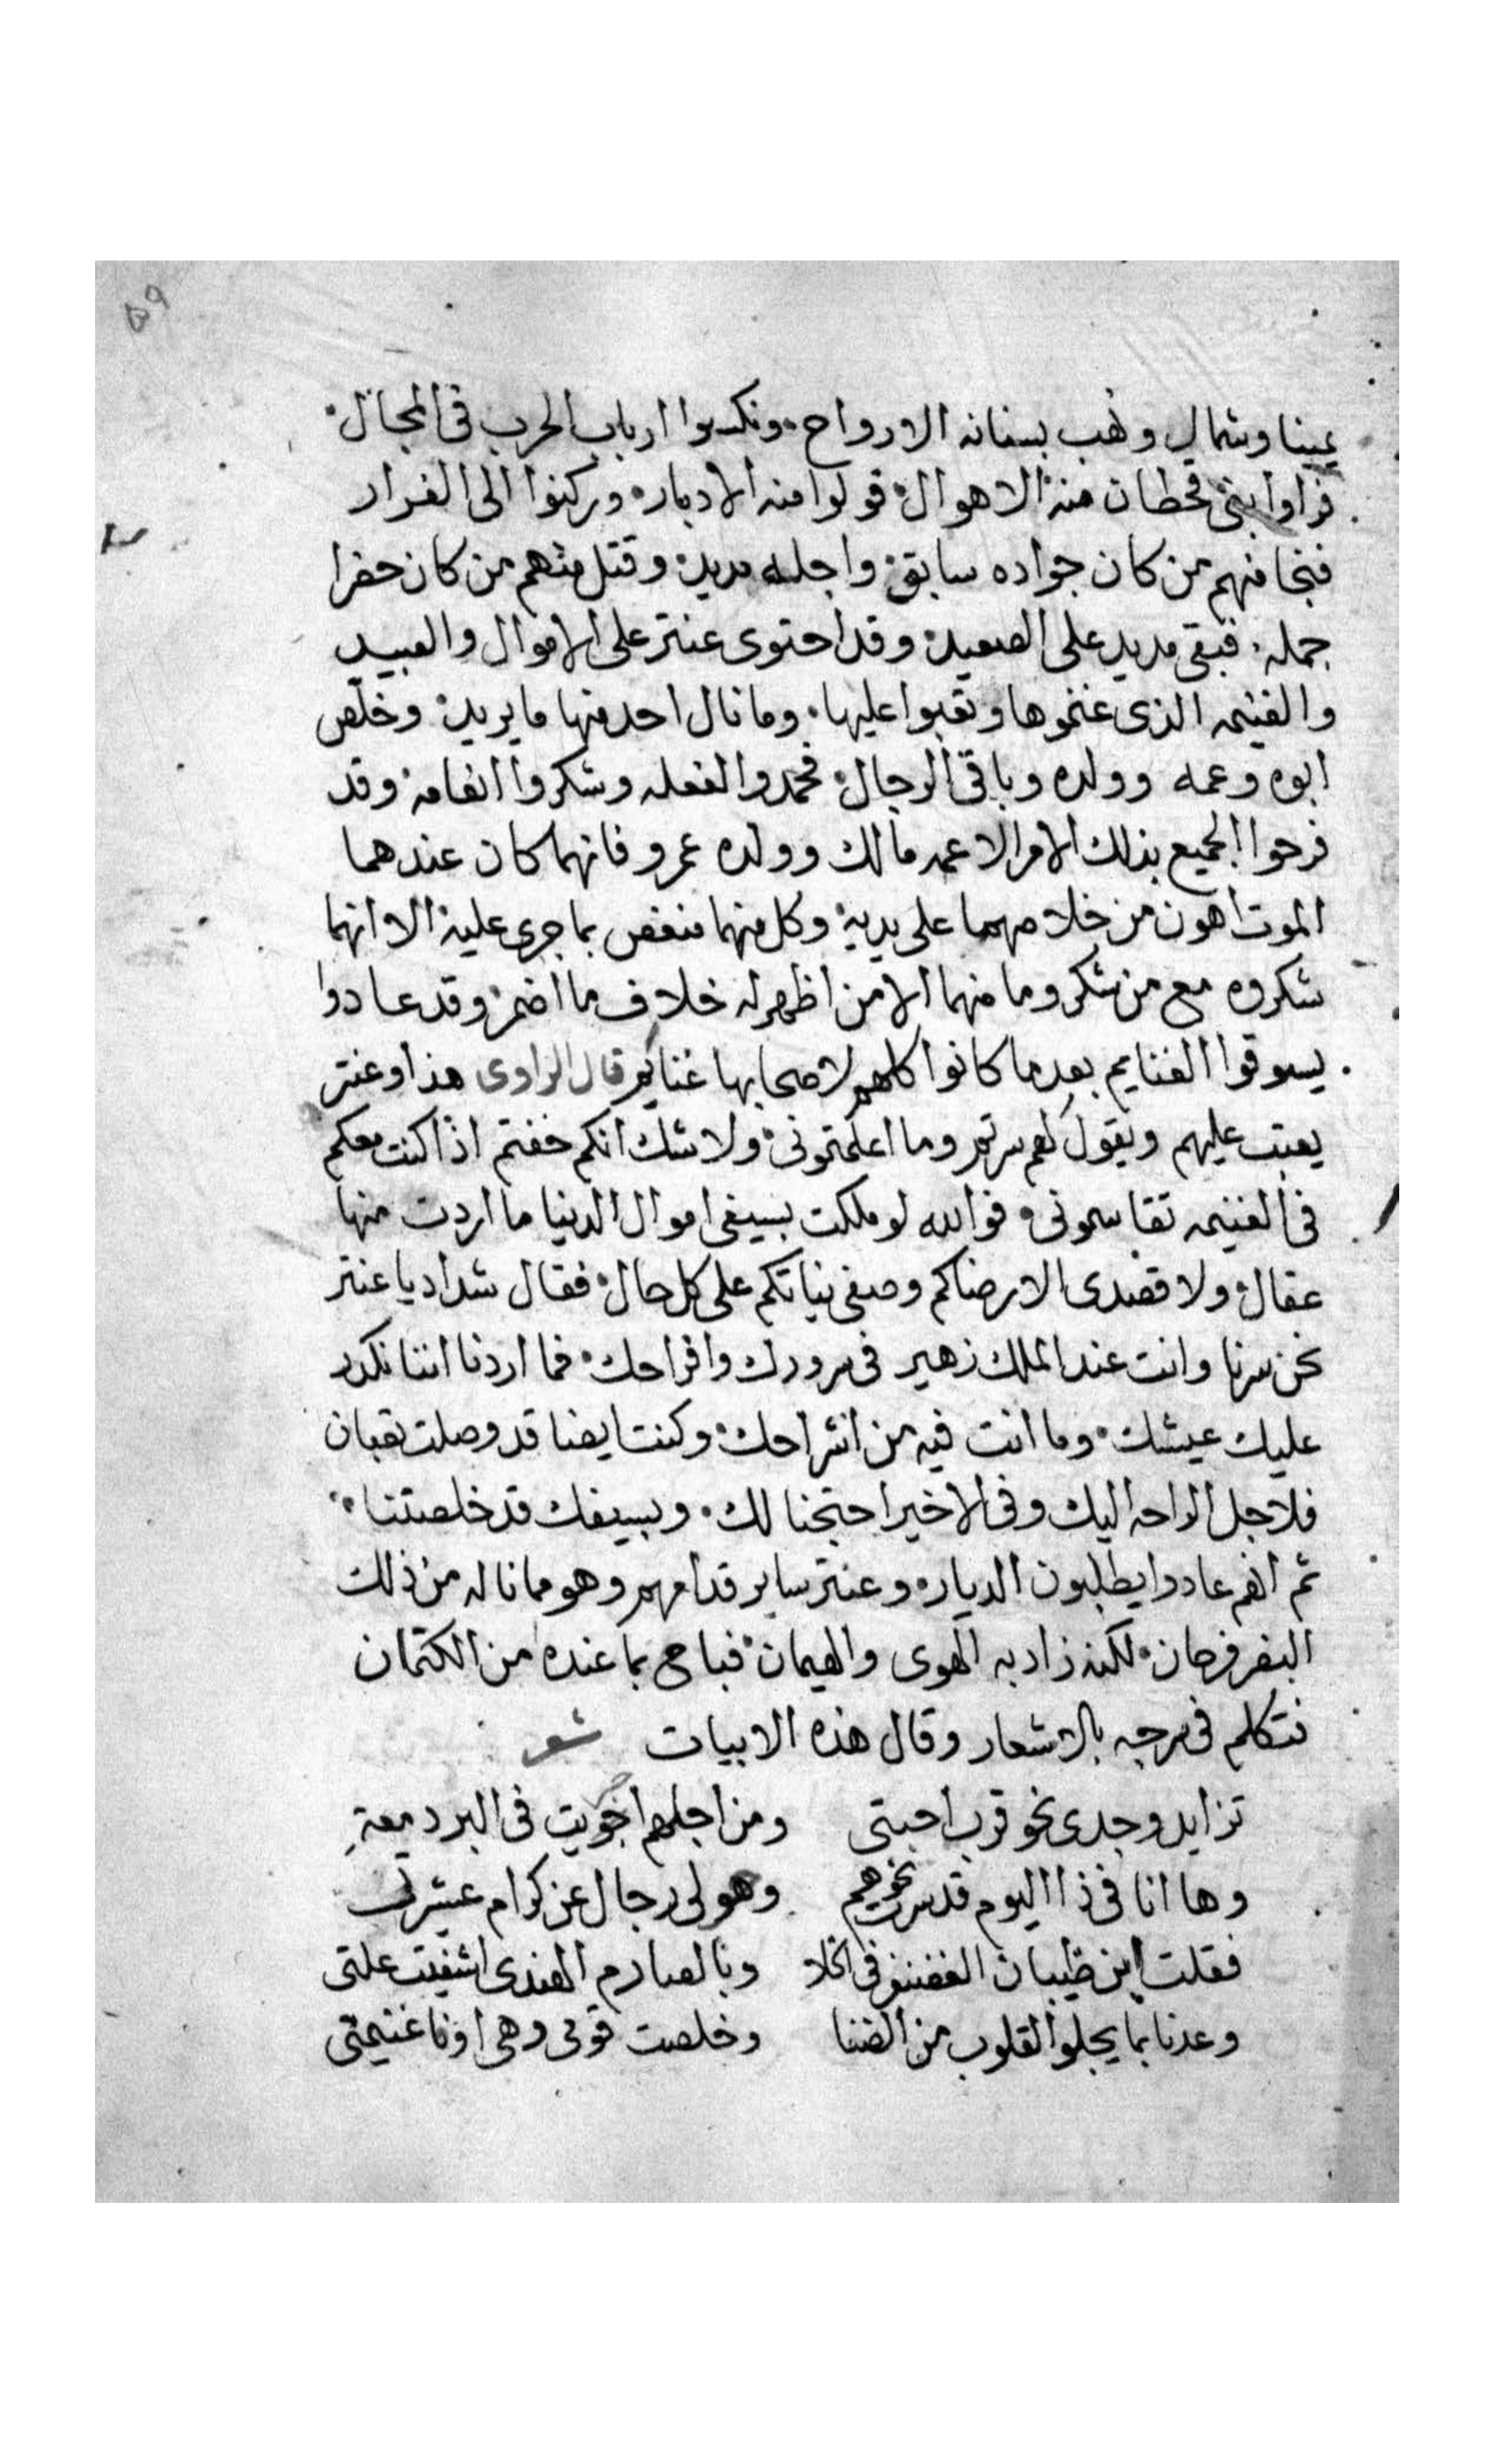 ٥٩
يمينا وشمال ونهب بسنانه الارواح ونكسوا ارباب الحرب فى المجال
فراوا بنى قحطان منه الاهوال فولوا منه الادبار وركنوا الى الفرار
فنجا منهم من كان جواده سابق واجله مديد وقتل منهم من كان حضرا
جمله فبقى مديد على الصعيد وقد احتوى عنتر على الاموال والعبيد
والغنيمه الذى غنموها وتعبوا عليها وما نال احد منها ما يريد وخلص
ابوه وعمه وولده وباقى الرجال فحمدوا لفعله وشكروا انعامه وقد
فرحوا الجميع بذلك الامر الا عمه مالك وولده عمرو فانهما كان عندهما
الموت اهون من خلاصهما على يديه وكل منهما منغص بما جرى عليه الا انهما
شكروه مع من شكر وما منهما الا من اظهر له خلاف ما اضمر وقد عادوا
يسوقوا الغنايم بعد ما كانوا كلهم لاصحابها غنايم قال الراوى هذا وعنتر
يعتب عليهم ويقول لهم سرتم وما اعلمتونى ولا شك انكم خفتم اذا كنت معكم
فى الغنيمه تقاسمونى فوالله لو ملكت بسيفى اموال الدنيا ما اردت منها
عقال ولا قصدى الا رضاكم وصفى نياتكم على كل حال فقال شداد يا عنتر
نحن سرنا وانت عند الملك زهير فى سرورك وافراحك فما اردنا اننا نكدر
عليك عيشك وما انت فيه من انشراحك وكنت ايضا قد وصلت تعبان
فلاجل الراحه اليك وفى الاخير احتجنا لك وبسيفك قد خلصتنا
ثم انهم عادوا يطلبون الديار وعنتر ساير قدامهم وهو مما ناله من ذلك
النصر فرحان لكنه زاد به الهوى والهيمان فباح بما عنده من الكتمان
فتكلم فى سرجه بالاشعار وقال هذه الابيات شعر
تزايد وجدى نحو قرب احبتى ومن اجلهم اجريت فى البر دمعة
وها انا فى ذا اليوم قد سرت نحوهم وهو لى رجال عن كرام عشيرتى
فقلت ابن ظبيان الغضنفر فى الخلا وبالصارم الهندى اشفيت علتى
وعدنا بما يجلوا القلوب من الضنا وخلصت قومى وهى اوفا غنيمتى